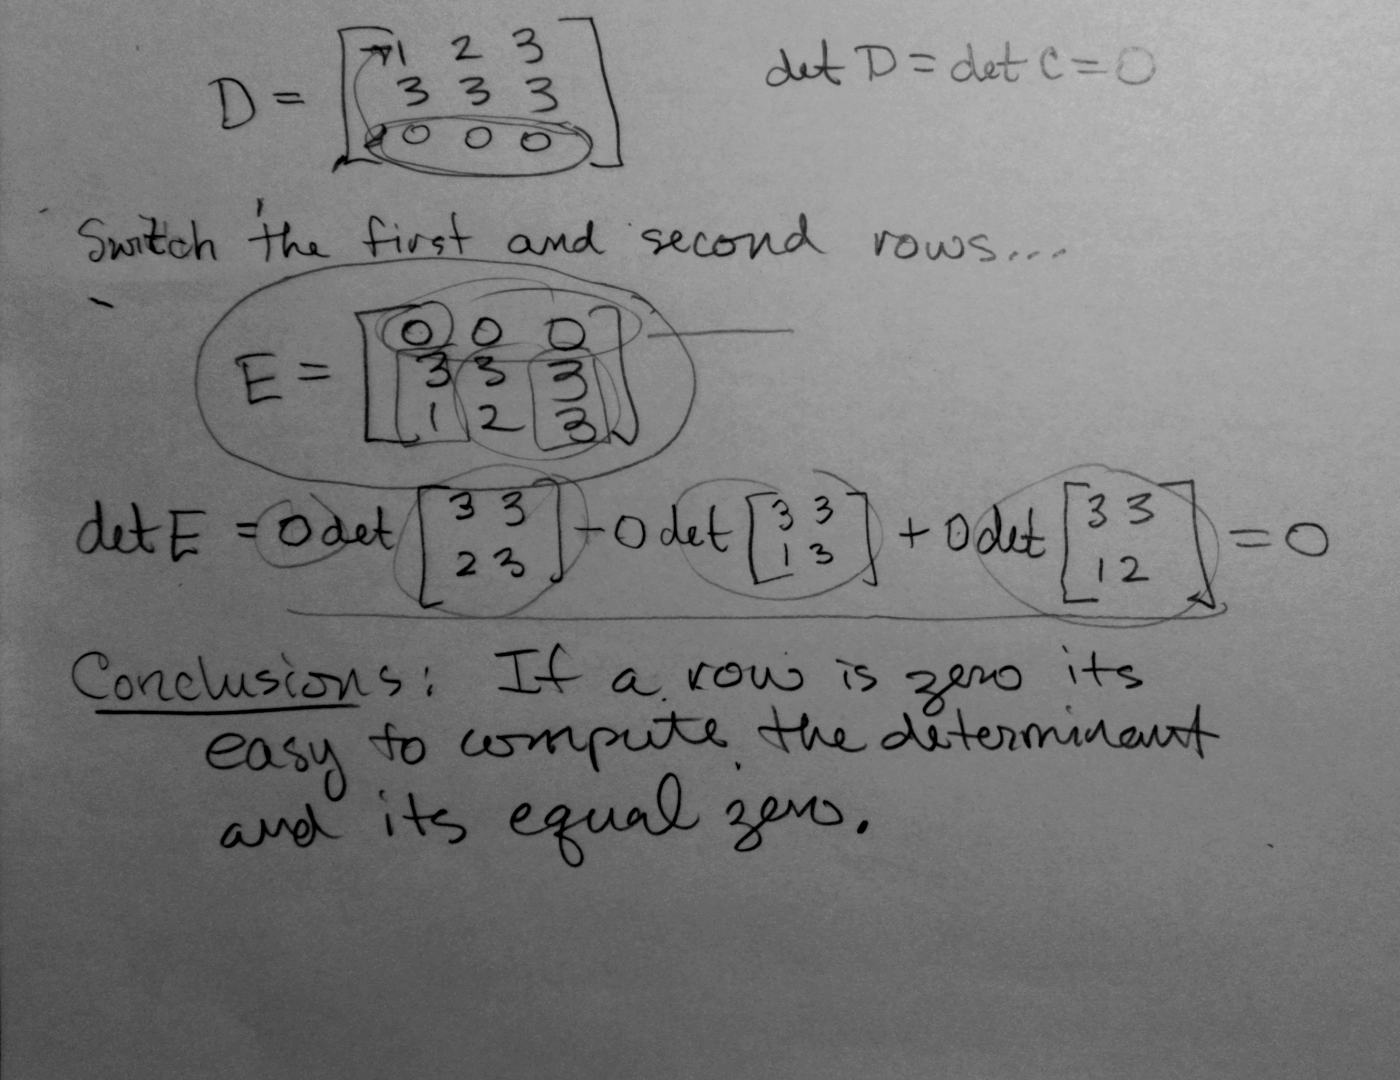 D = [ 1 2 3
3 3 3
0 0 0 ]
det D = det C = 0
Switch the first and second rows...
E = [ 0 0 0
3 3 3
1 2 3 ]
det E = 0 det [ 3 3 - 0 det [ 3 3 + 0 det [ 3 3 = 0
2 3 ] 1 3 ] 1 2 ]
Conclusions: If a row is zero its
easy to compute the determinant
and its equal zero.